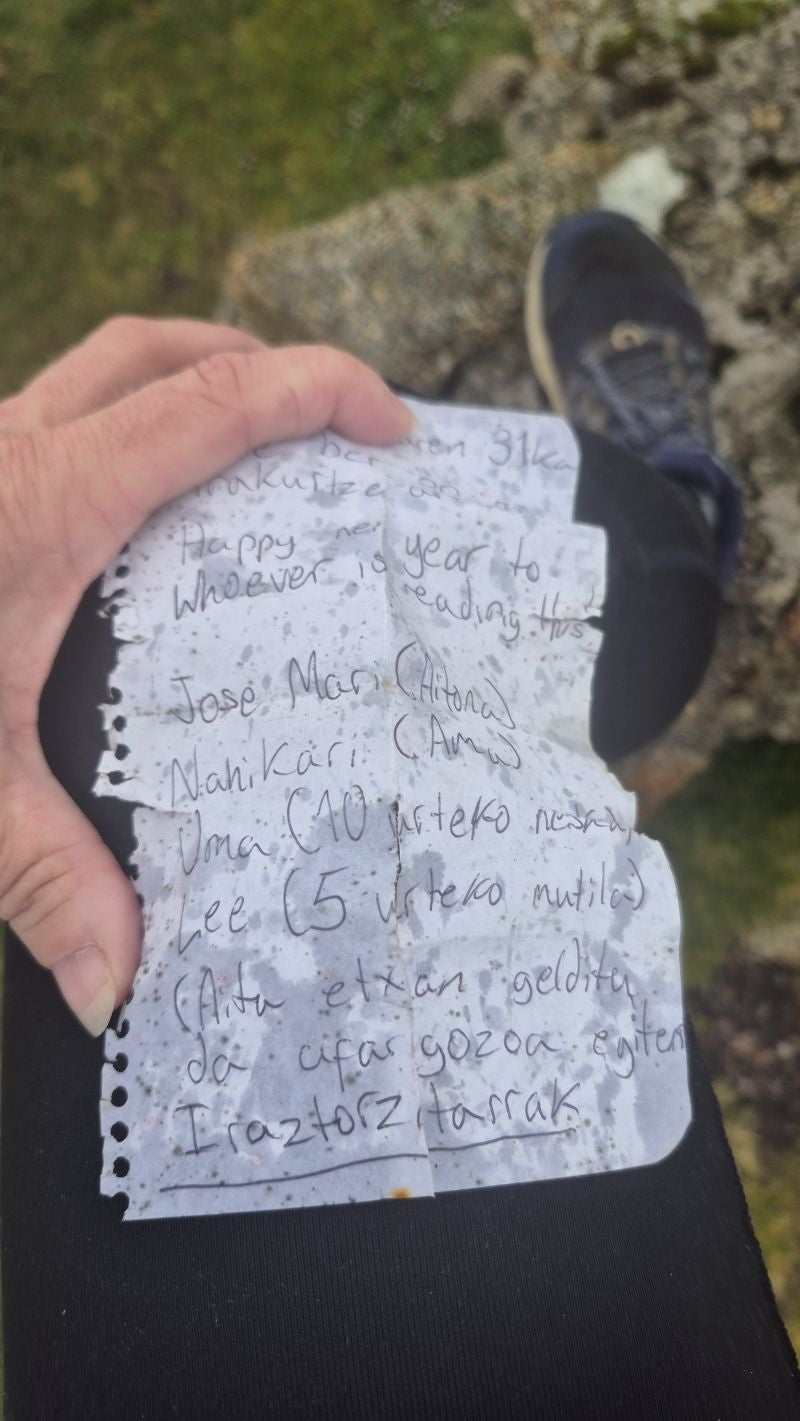 31ka
Happy new year to
Whoever is reading this
Jose Mari (Aitona)
Nahikari (Ama)
Uma (10 urteko neska)
Lee (5 urteko mutila)
(Aita etxan gelditu
da afari gozoa egiten
Iraztorzitarrak